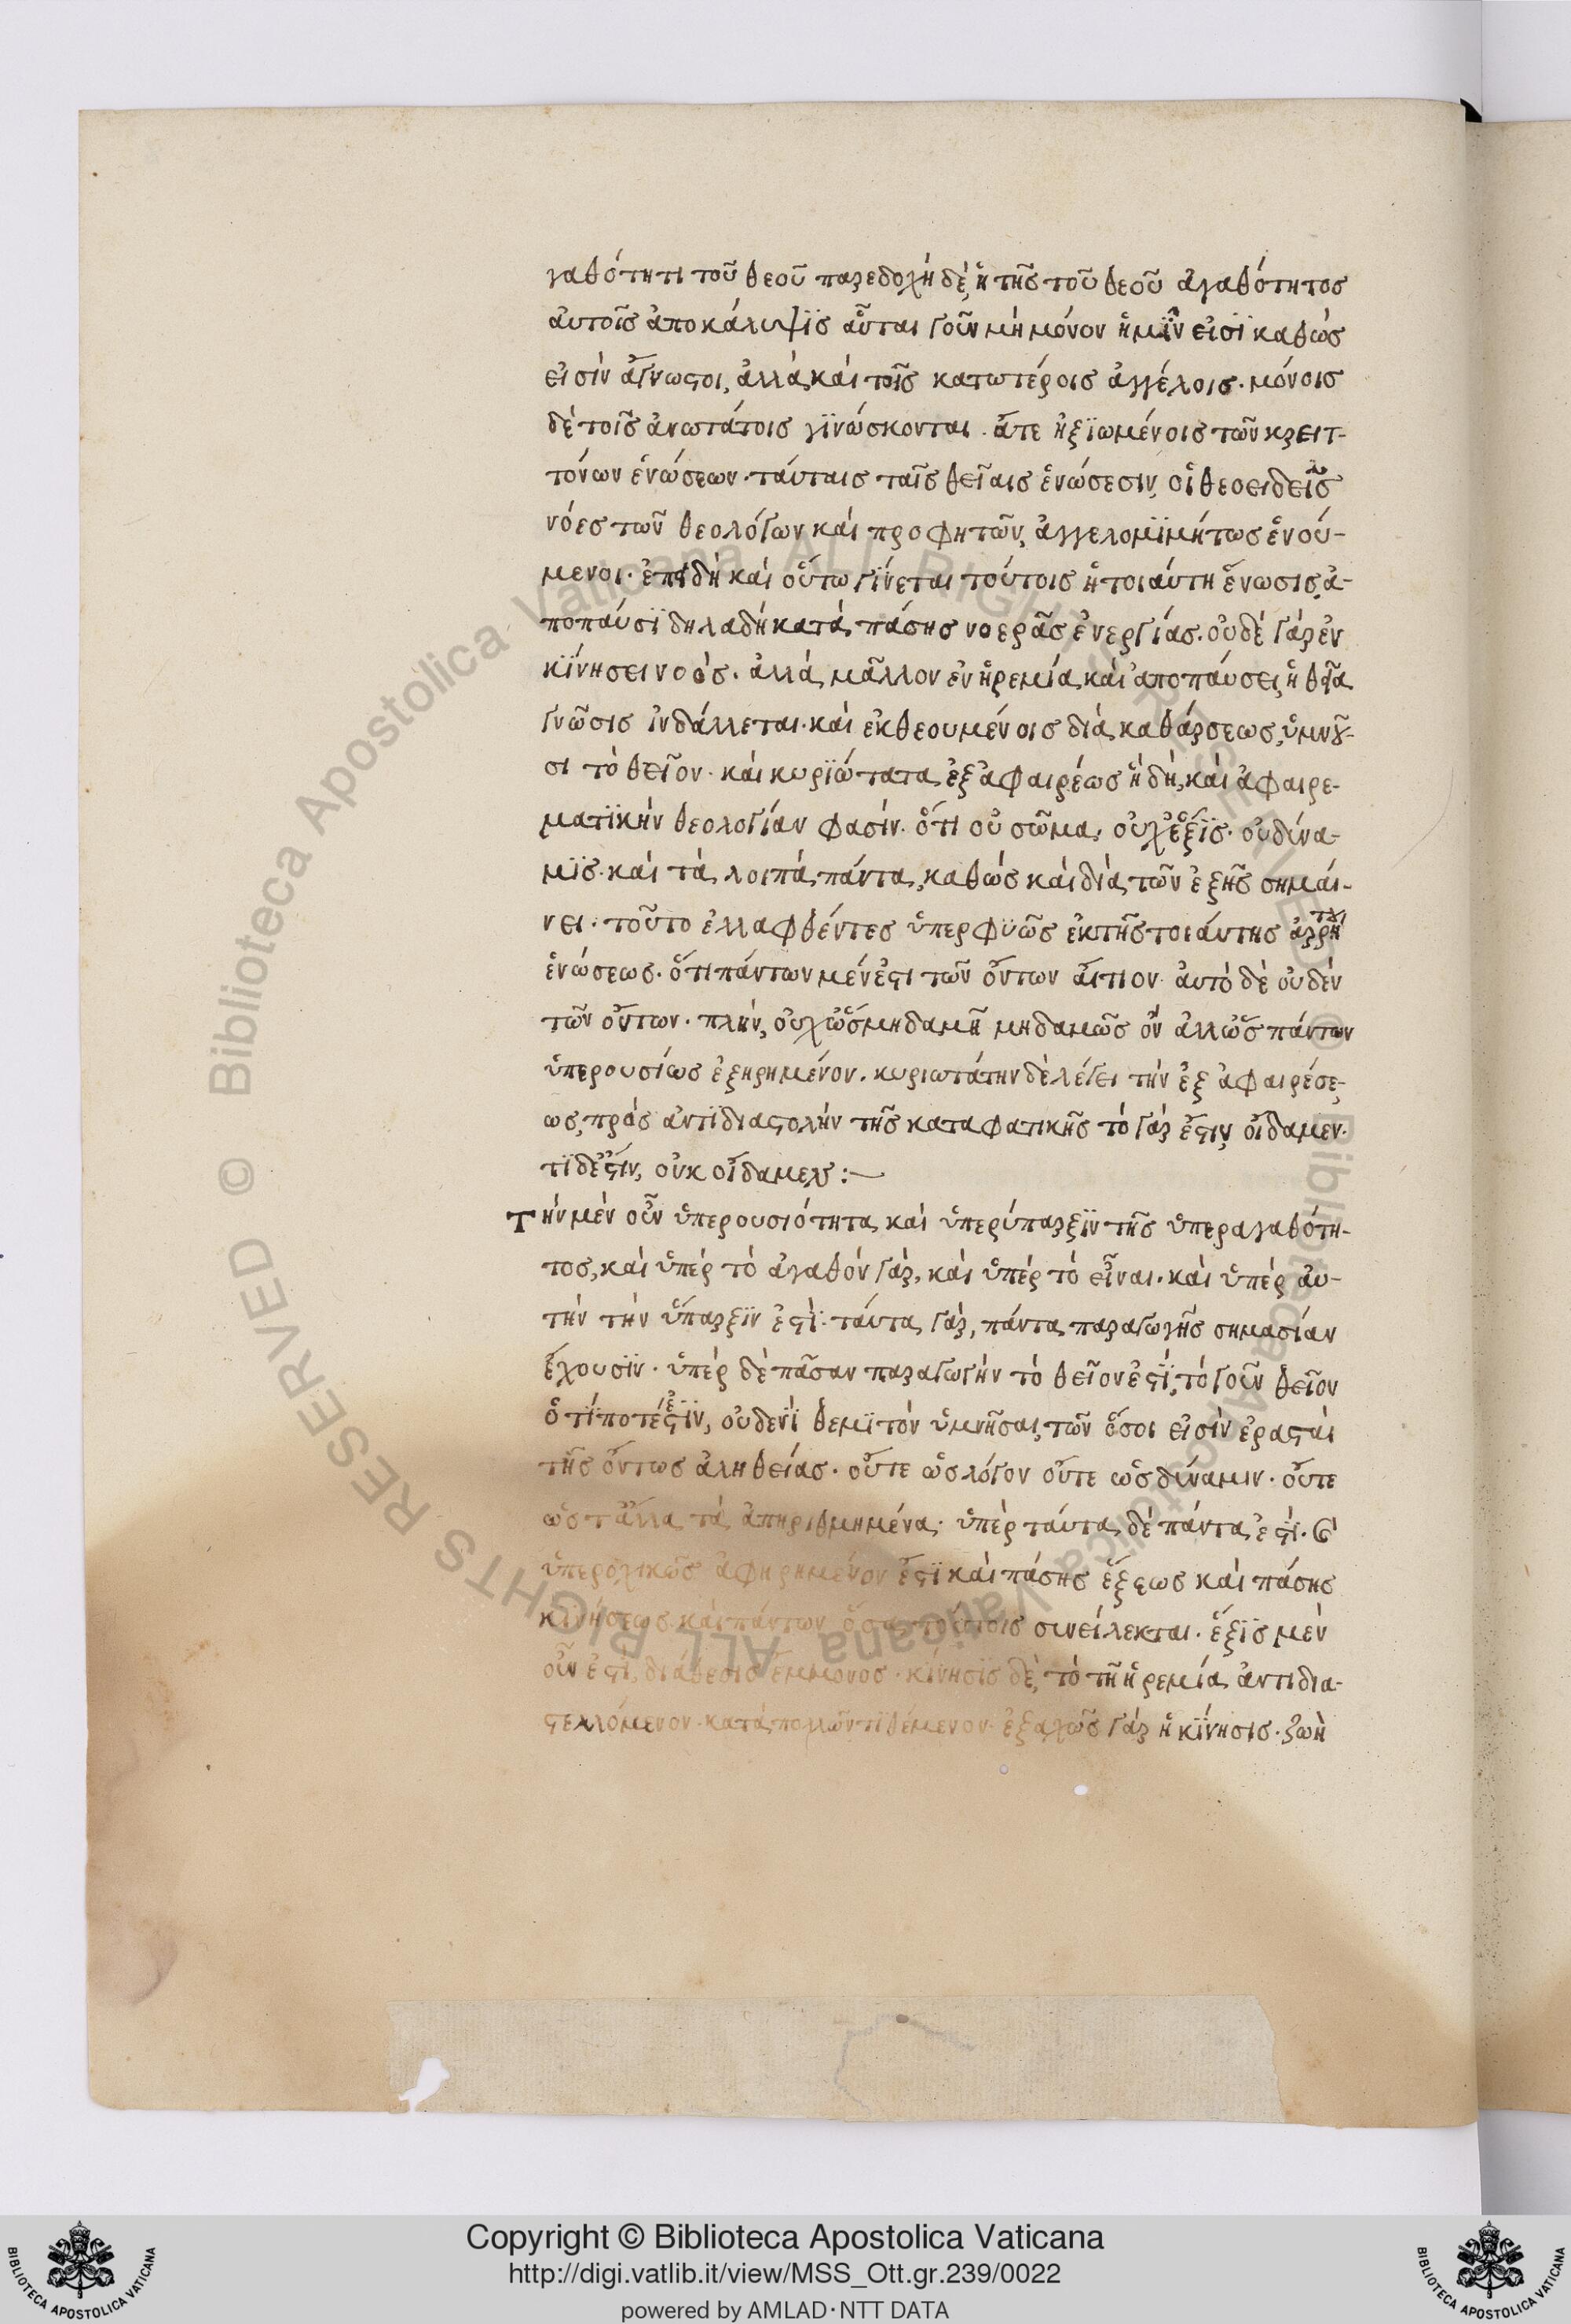 γαθότητι τοῦ θεοῦ παρεδοχὴ δὲ, ἡ τῆς τοῦ θεοῦ ἀγαθότητος
ἀυτοῖς ἀποκάλυψϊς αὗται γοῦν μὴ μόνον ἡμῖν εἰσῒ καθὼς
εἰσὶν ἄγνωστοι, ἀλλὰ καὶ τοῖς κατωτέροις ἀγγέλοις· μόνοις
δὲ τοῖς ἀνωτάτοις γϊνώσκονται. ἅτε ἠξϊωμένοις τῶν κρειτ-
τόνων ἑνώσεων· ταύταις ταῖς θεῖαις ἑνώσεσιν, οἱ θεοειδεῖς
νόες τῶν θεολόγων καὶ προφητῶν, ἀγγελομϊμήτως ἑνού-
μενοι· ἐπειδὴ καὶ οὕτω γίνεται τούτοις ἡ τοιαύτη ἕνωσις, ἀ-
ποπαύσϊ δηλαδὴ κατὰ πάσης νοερᾶς ἐνεργίας. οὐδὲ γὰρ ἐν
κϊνήσει νοὸς. ἀλλὰ μᾶλλον ἐν ἠρεμία καὶ ἀποπαύσει, ἡ θεῖα
γνῶσις ἰνδάλλεται· καὶ ἐκθεουμένοις διὰ καθάρσεως, ὑμνοῦ-
σι τὸ θεῖον· καὶ κυρϊώτατα ἐξ ἀφαιρέως ἤδη, καὶ ἀφαιρε-
ματϊκὴν θεολογίαν φασίν· ὅτι οὐ σῶμα, οὐχ ἕξϊς· οὐ δύνα-
μϊς· καὶ τὰ λοιπὰ πάντα, καθὼς καὶ διὰ τῶν ἑξῆς σημαί-
νει· τοῦτο ἐλλαφθέντες ὑπερφϋῶς ἐκ τῆς τοιάυτης
ἑνώσεως· ὅτι πάντων μέν ἐστι τῶν ὄντων αἴτιον· ἀυτὸ δὲ οὐδὲν
τῶν ὄντων· πλὴν, οὐχ ὡς μηδαμῆ μηδαμῶς ὂν ἀλλ' ὡς πάντων
ὑπερουσίως ἐξηρημένον. κυριωτάτην δὲ λέγει τὴν ἐξ ἀφαιρέσε-
ως, πρὸς ἀντϊδιαστολὴν τῆς καταφατικῆς τὸ γὰρ ἔστιν, οἴδαμεν·
τϊ δέ ἐστιν, οὐκ οἴδαμεν:—
Τὴν μὲν οὖν ὑπερουσιότητα, καὶ ὑπερύπαρξϊν τῆς ὑπεραγαθότη-
τος, καὶ ὑπὲρ τὸ ἀγαθὸν γὰρ, καὶ ὑπὲρ τὸ εἶναι· καὶ ὑπὲρ ἀυ-
τὴν τὴν ὕπαρξϊν ἐστϊ· ταύτα γὰρ, πάντα παραγωγῆς σημασίαν
ἔχουσϊν· ὑπὲρ δὲ πᾶσαν παραγωγὴν τὸ θεῖον ἐστϊ, τὸ γοῦν θεῖον
ὅ τί ποτέ ἐστϊν, οὐδενϊ θεμϊτὸν ὑμνῆσαι, τῶν ὅσοι εἰσὶν ἐρασταὶ
τῆς ὄντως ἀληθείας· οὔτε ὡς λόγον οὔτε ὡς δύναμιν· οὔτε
ὡς τἄλλα τὰ ἀπηριθμημένα· ὑπὲρ ταύτα δὲ πάντα ἐστϊ. ϗ
ὑπεροχικῶς ἀφηρημένον ἐστϊ καὶ πάσης ἕξεως καὶ πάσης
κϊνήσεως· καὶ πάντων ὅσα τούτοις συνείλεκται· ἕξϊς μὲν
οὖν ἐστϊ, διάθεσις ἔμμονος· κίνησϊς δὲ, τὸ τῆ ἠρεμία ἀντιδια-
στελλόμενον· κατὰ πολλῶν τϊθέμενον· γὰρ ἡ κϊνησις· ζωὴ
Copyright © Biblioteca Apostolica Vaticana
http://digi.vatlib.it/view/MSS_Ott.gr.239/0022
powered by AMLAD·NTT DATA